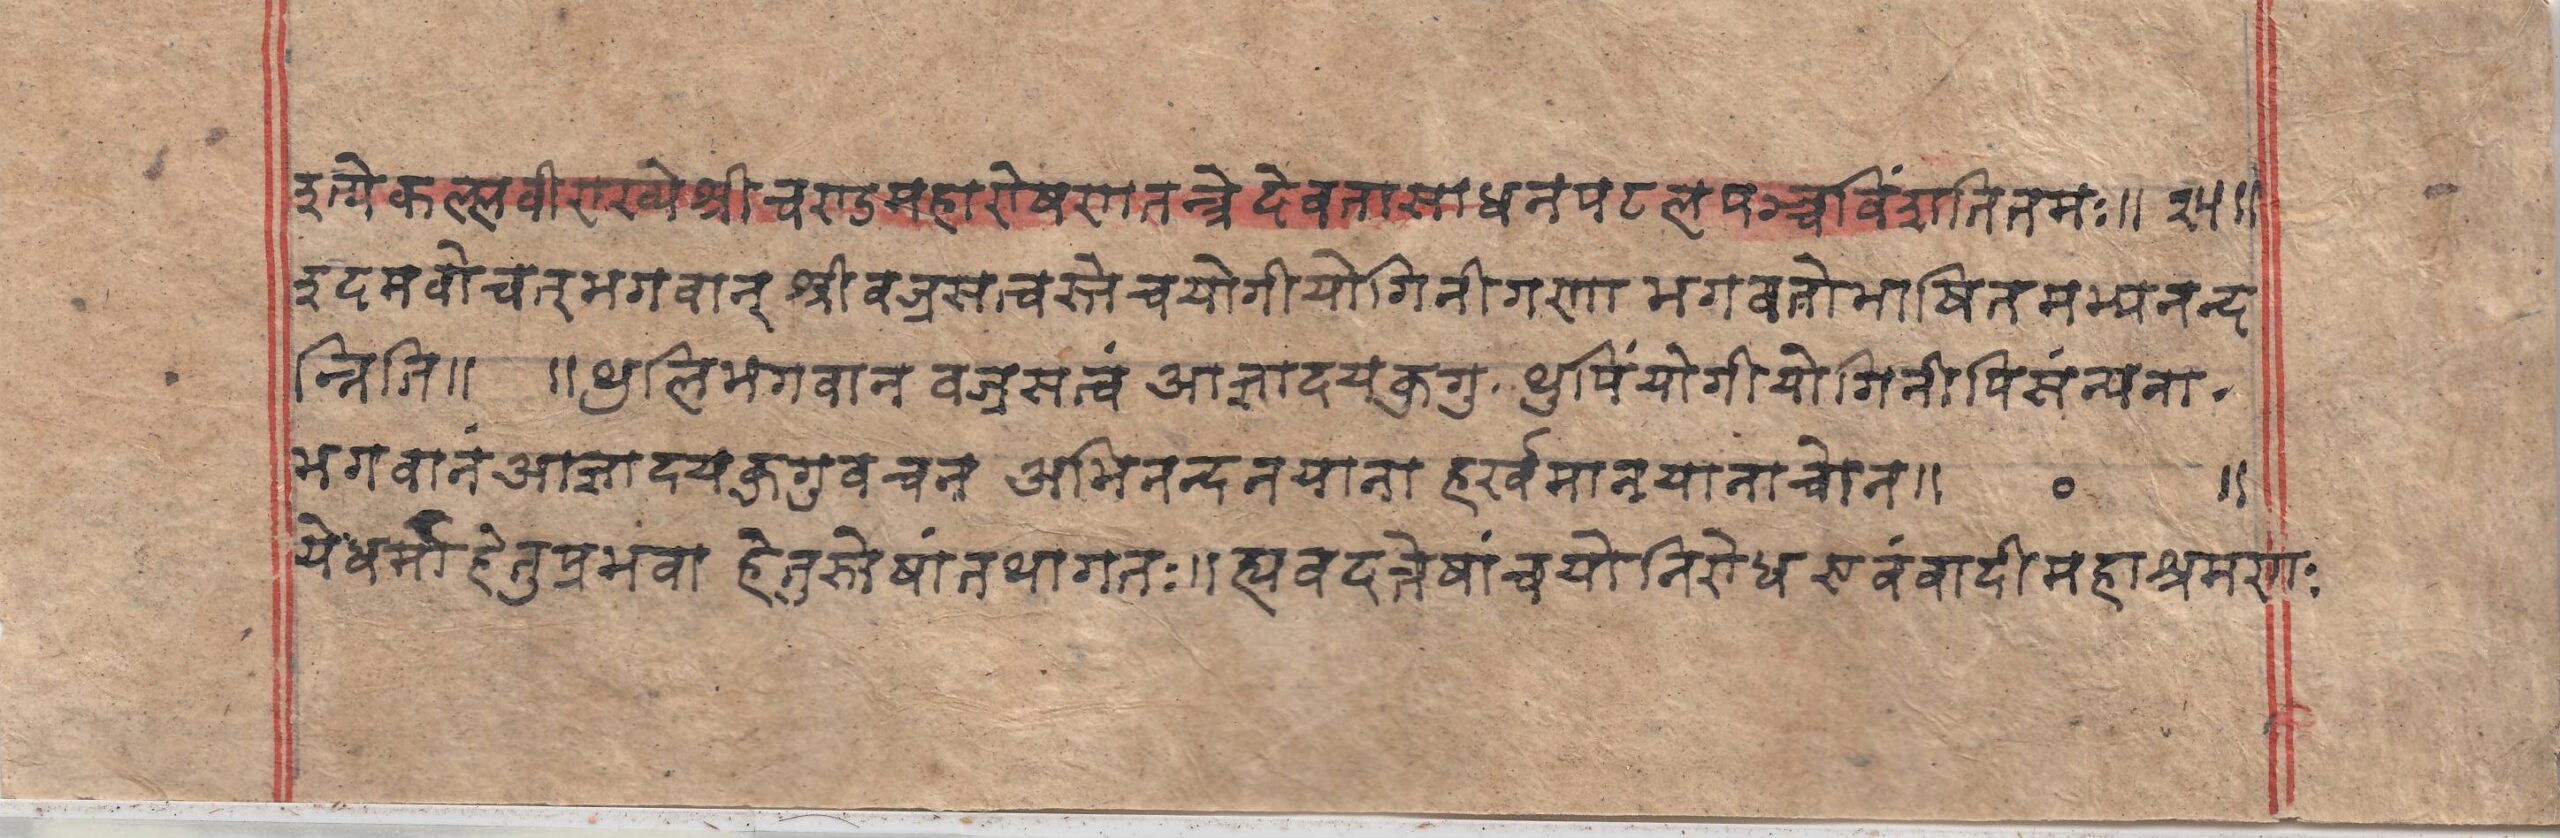 इत्येकल्लवीराख्ये श्रीचण्डमहारोषणतन्त्रे देवतासाधनपटलपञ्चविंशतितमः॥ २५॥
इदमवोचत् भगवान् श्रीवज्रसत्त्वस्ते च योगीयोगिनीगणा भगवतो भाषितमभ्यनन्द
न्निति॥ ॥ थुलि भगवान वज्रसत्वं आज्ञादयकुगु. थुपिं योगीयोगिनीपिसं न्यना.
भगवानं आज्ञादयकुगु वचन अभिनन्दनयाना हर्खमानयानाचोन॥ ० ॥
ये धर्मा हेतुप्रभवा हेतुस्तेषां तथागतः॥ ह्यवदत्तेषां च यो निरोध एवं वादी महाश्रमणः